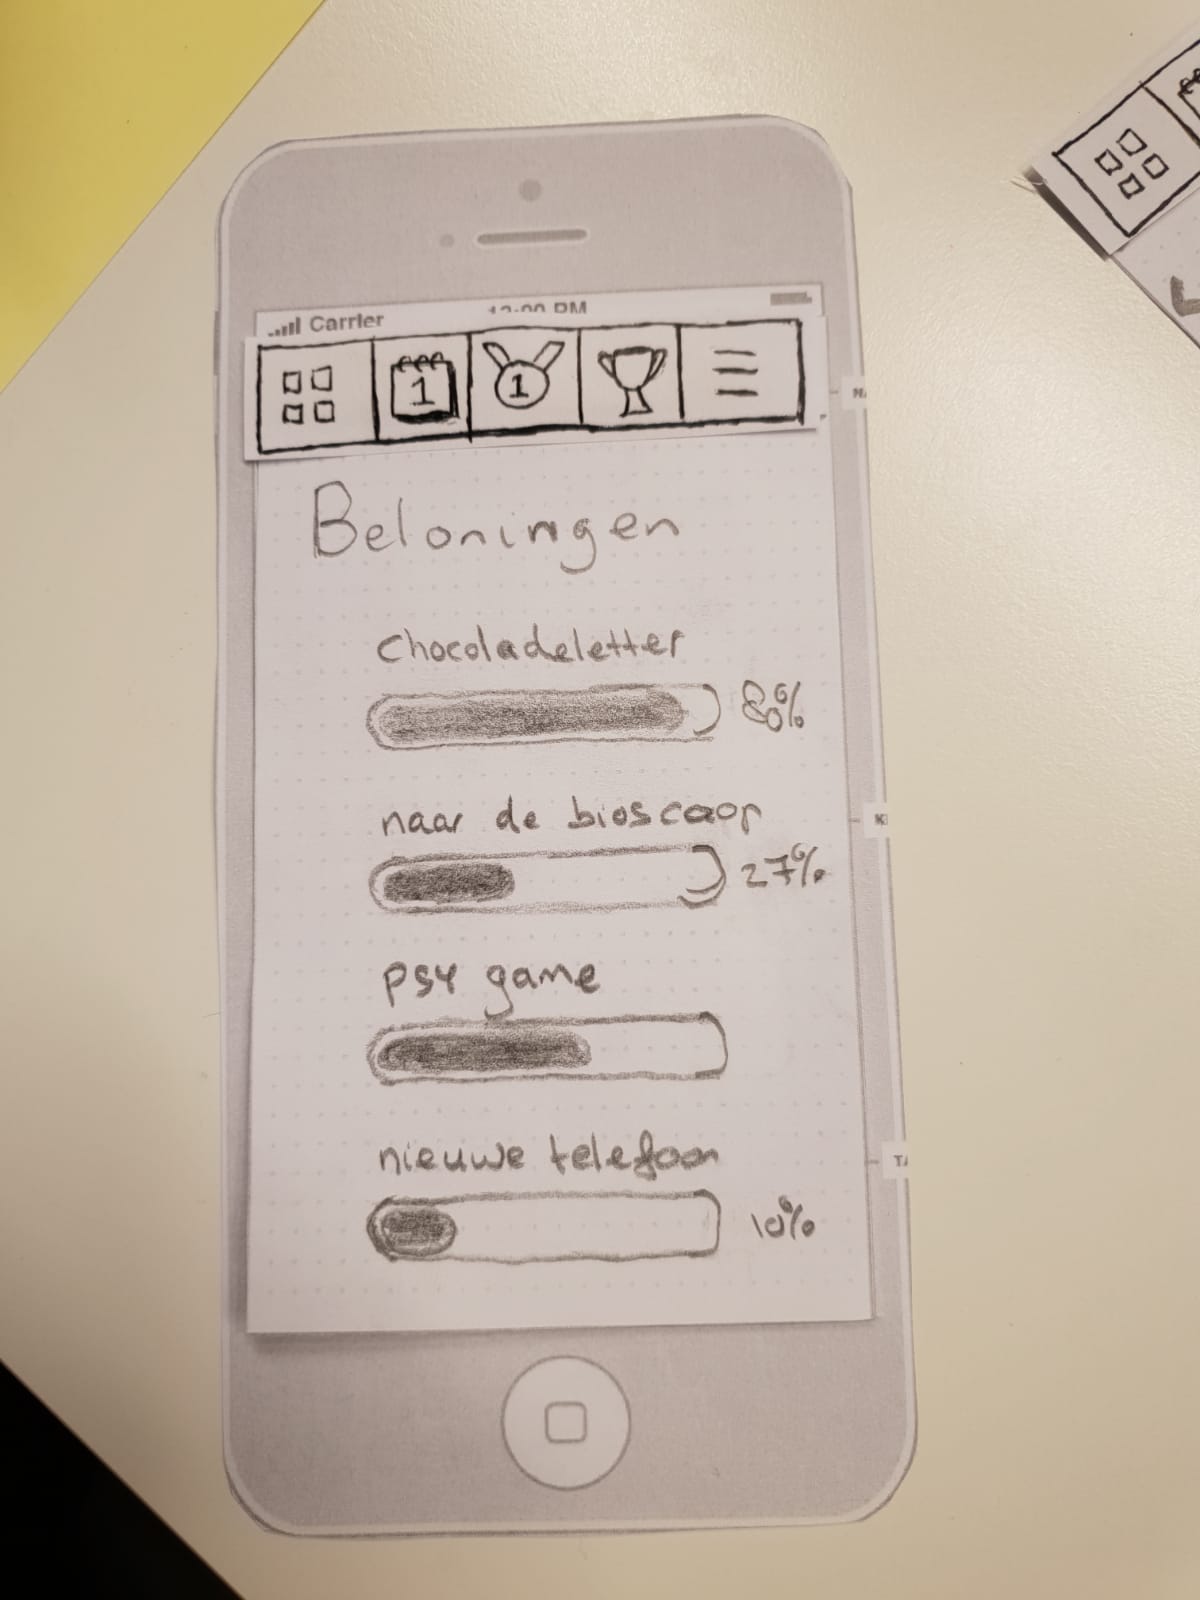 Carrier
12:00 PM
1
1
Beloningen
chocoladeletter
80%
naar de bioscoop
27%
ps4 game
nieuwe telefoon
10%